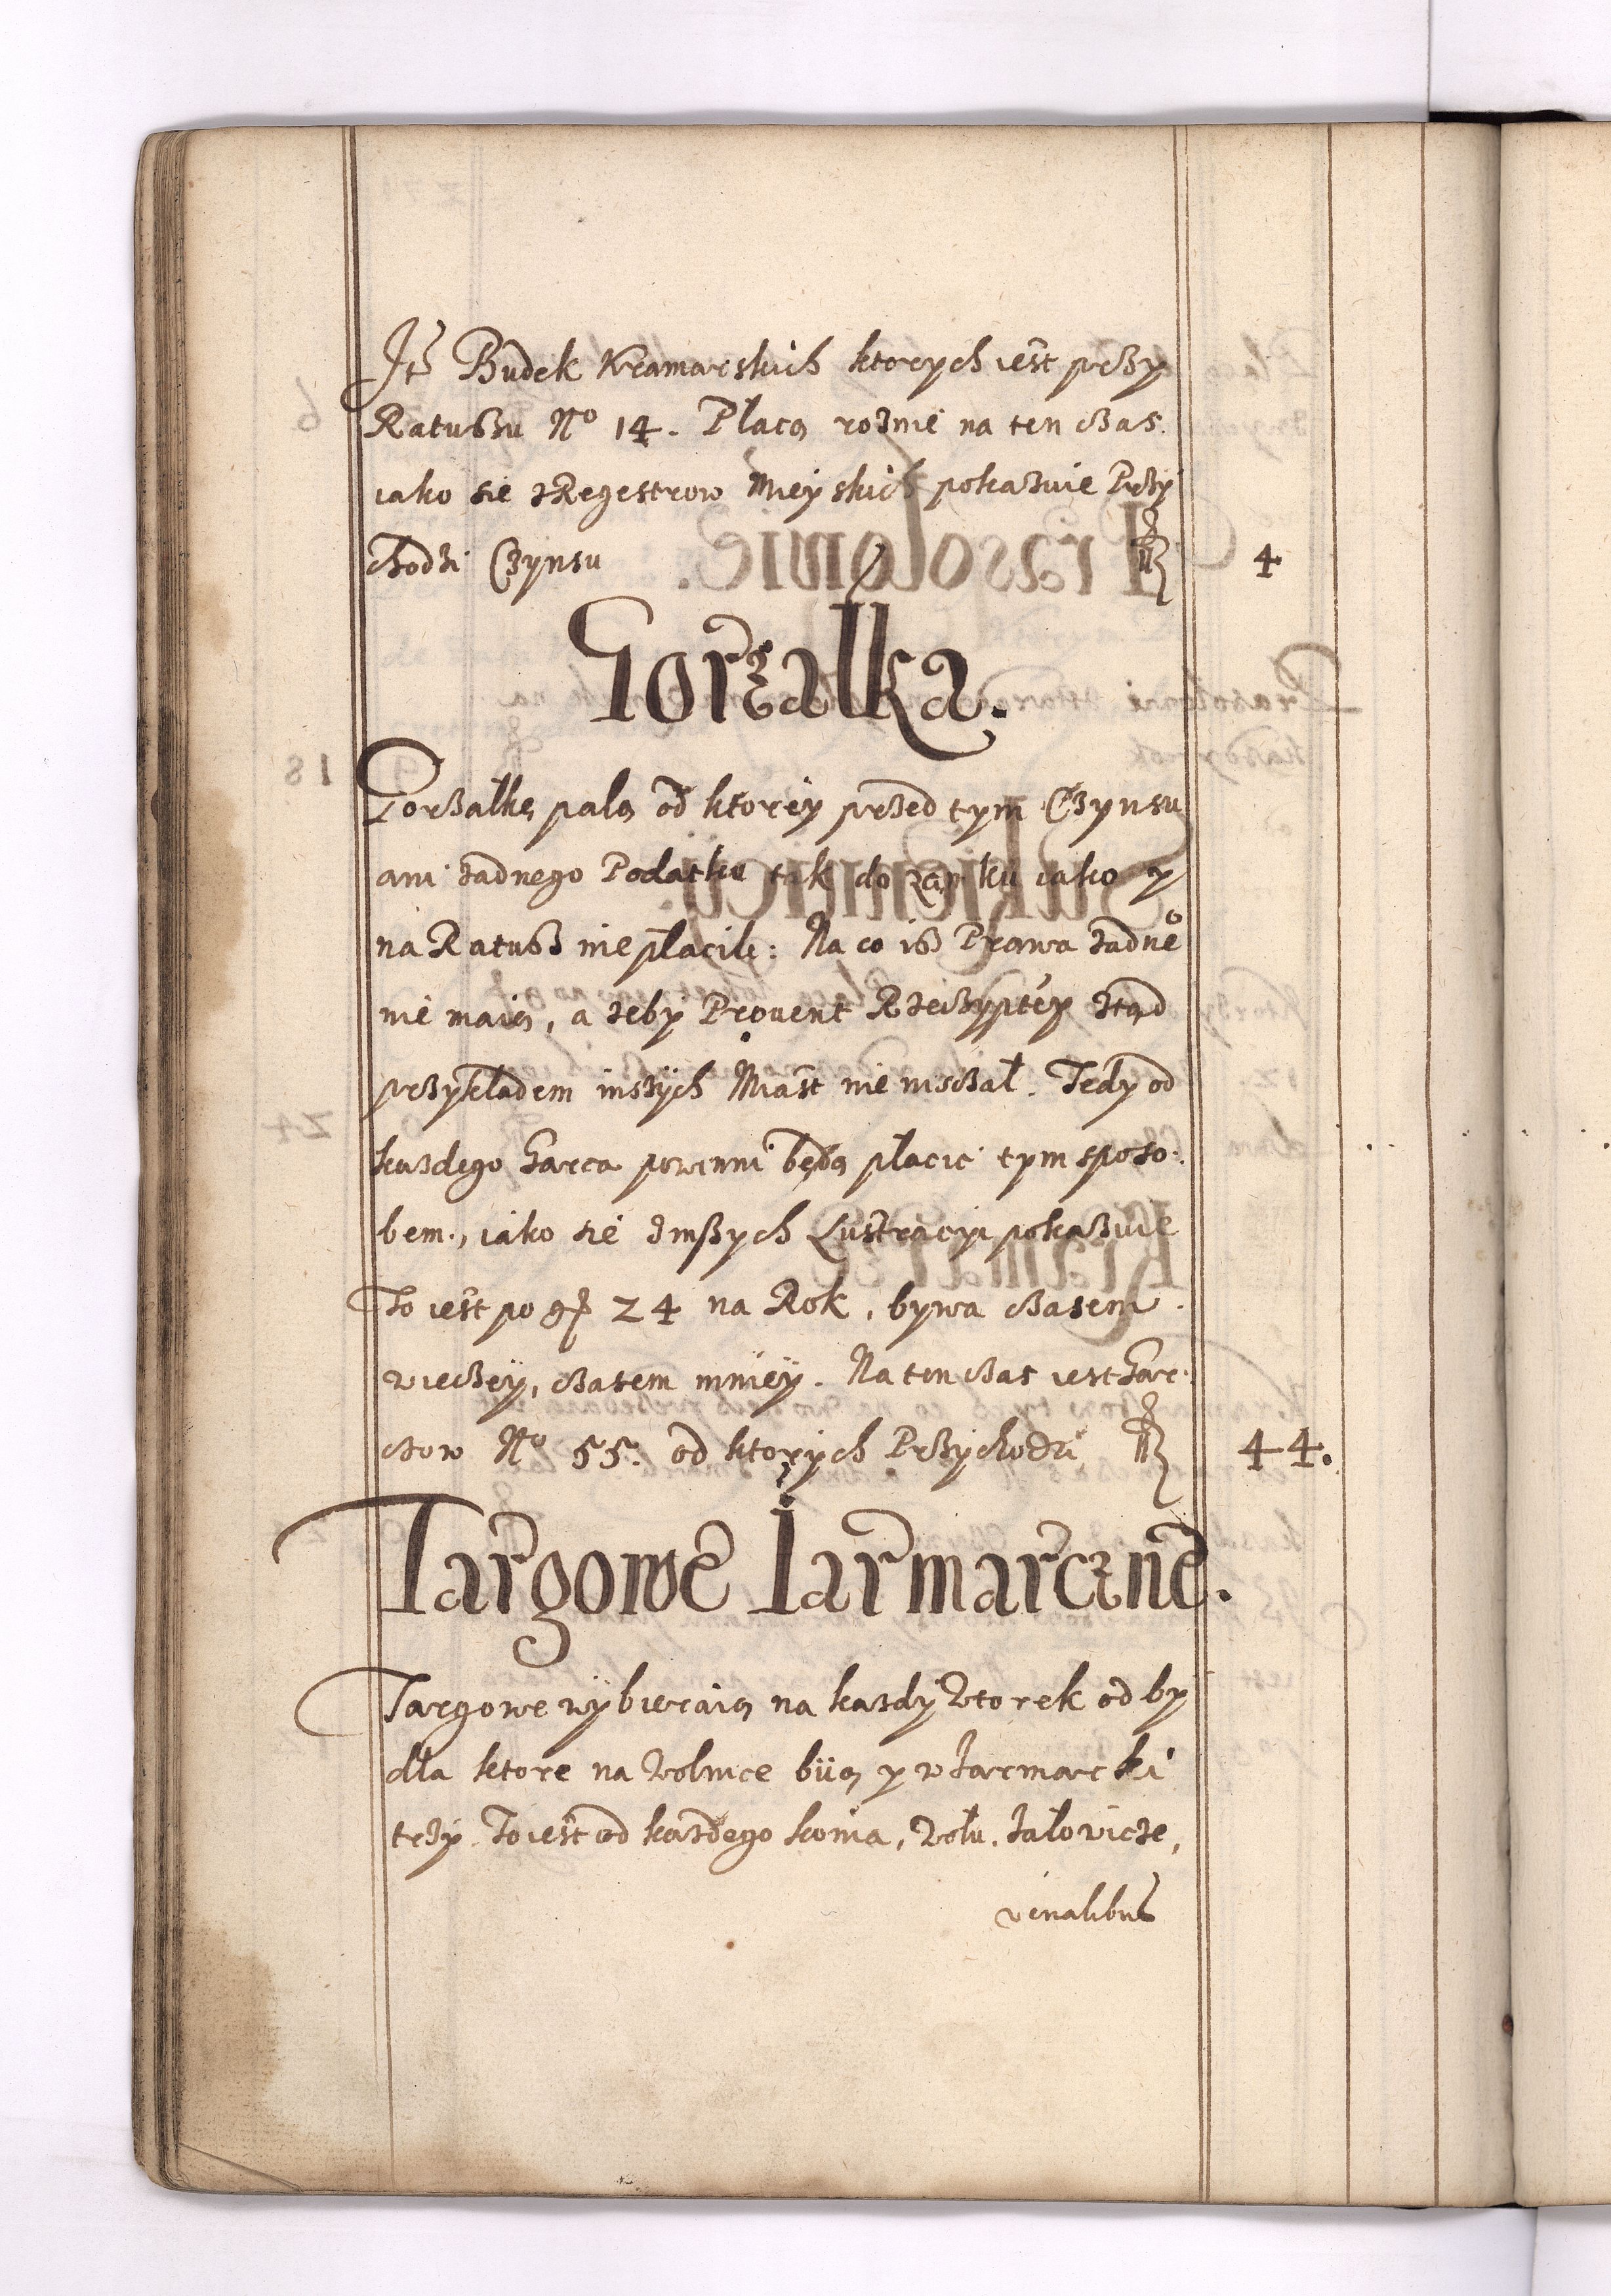 Itē Budek Kramarskich ktorych iest przy
Ratuszu No 14. Płacą rożnie na ten czas.
iako sie z Regestrow Mieyskich pokazuie Przy
chodzi Czynsu fl 4
Gorzałka.
Gorzałkę palą od ktorey przed tym Czynsu
ani żadnego Podatku tak do zamku iako y
na Ratusz nie płacili: Na co isz Prawa żadnego
nie maią, a żeby Provent Rzeczyptey ztąd
przykładem inszych Miast nie niszczał. Tedy od
każdego Garca powinni będą płacic tym sposo:
bem, iako sie z inszych Lustracyi pokazuie
To iest po gr 24 na Rok, bywa czasem
wieczey, czasem mniey. Na ten czas iest Gar:
czow No 55. od ktorych Przychodzi fl 44.
Targowe Iarmarczne.
Targowe wybieraią na każdy Wtorek od by
dła ktore na Wolnice biią y w Iarmarki
trzy. To iest od każdego konia, Wołu, Iałowicze,
venalibus